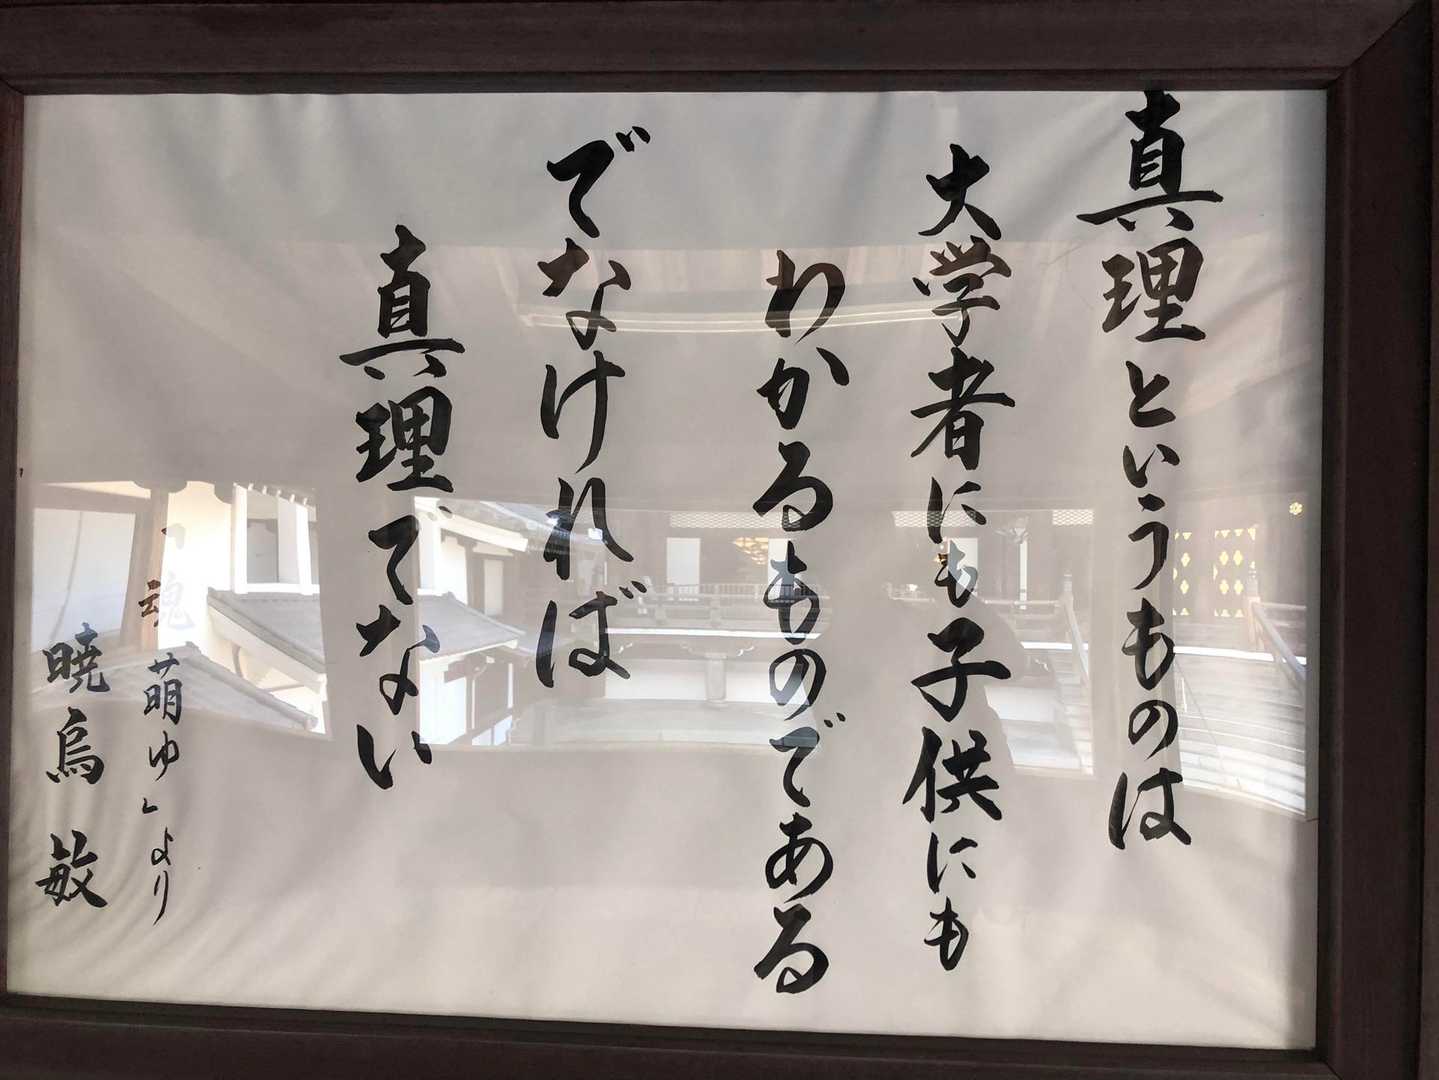 真理というものは
大学者にも子供にも
わかるものである
でなければ
真理でない
「魂萌ゆ」より
暁烏敏